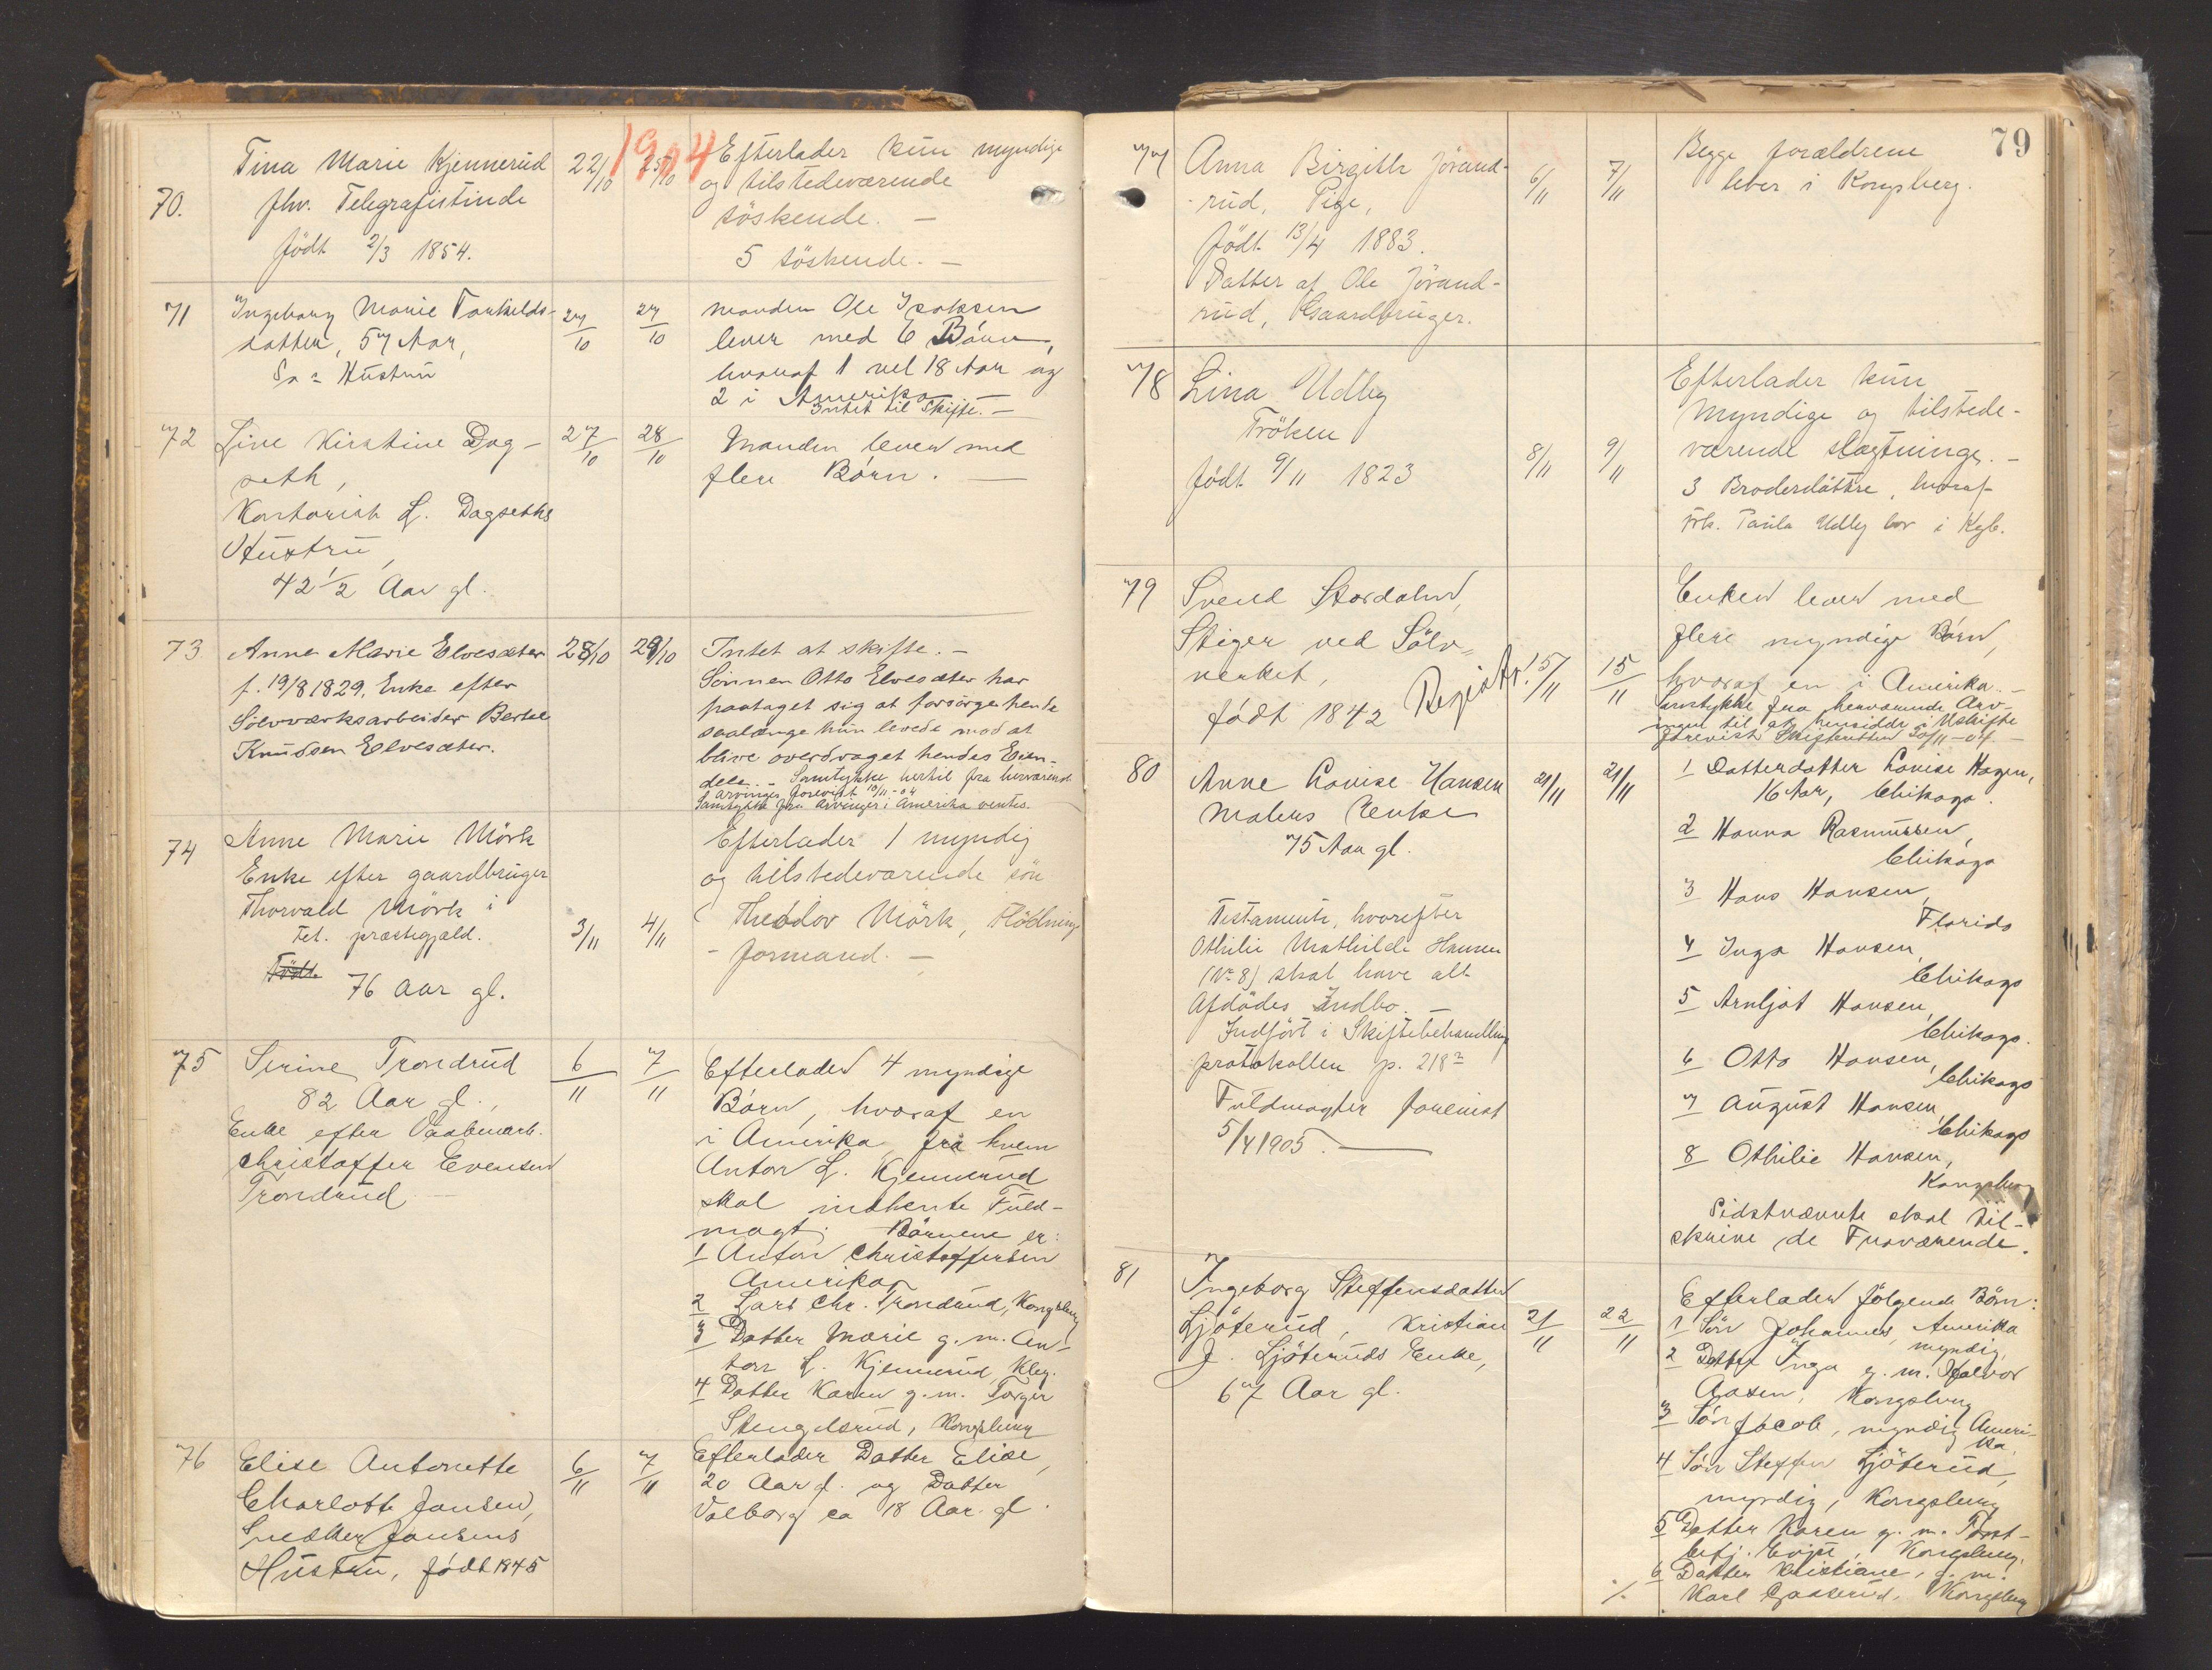 1904
70.
Tina Marie Kjennerud
fhv. Telegrafistinde
født 2/3 1854.
22/10
25/10
Efterlader kun myndige
og tilstedeværende
söskende. —
5 söskende. —
71
Ingeborg Marie Torkilds-
datter, 57 Aar,
Hustru
27/10
27/10
manden Ole Isaksen
lever med 6 Börn,
hvoraf 1 vel 18 Aar og
2 i Amerika
Intet til Skifte. —
72
Line Kirstine Dag-
seth,
Kontorist L. Dagseths
Hustru,
42 1/2 Aar gl.
27/10
28/10
Manden lever med
flere Börn. —
73
Anne Marie Elvesæter
f. 19/8 1829. Enke efter
Sölvværksarbeider Bertel
Knudsen Elvesæter.
28/10
29/10
Intet at skifte. —
Sönnen Otto Elvesæter har
paataget sig at forsörge hende
saalænge hun levede mod at
blive overdraget hendes Eien-
dele. - Samtykke hertil fra herværende
arvinger forevist 10/11 - 04
Samtykke fra arvinger i Amerika ventes.
74
Anne Marie Mörk
Enke efter gaardbruger
Thorvald Mörk i
Tel. præstegjeld.
Født
76 aar gl.
3/11
4/11
Efterlader 1 myndig
og tilstedeværende sön
Theodor Mörk, Flödnings
- formand. —
75
Serine Trondrud
82 Aar gl.,
Enke efter Vaabenarb.
Christoffer Evensen
Trondrud —
6/11
7/11
Efterlader 4 myndige
Börn, hvoraf en
i Amerika fra hvem
Anton L. Kjennerud
skal indhente Fuld-
magt. Börnene er:
1 Anton Christoffersen
Amerika
2 Lars Chr. Trondrud, Kongsberg
3 Datter Marie g. m. An-
ton L. Kjennerud Kbg.
4 Datter Karen g. m. Torger
Stengelsrud, Kongsberg
76
Elise Antonette
Charlotte Jansen,
Snedker Jansens
Hustru, født 1845
6/11
7/11
Efterlader Datter Elise,
20 Aar g. og Datter
Valborg ca 18 Aar. gl.
79
77
Anna Birgith Jörand-
rud, Pige,
født 13/4 1883.
Datter af Ole Jörand-
rud, Gaardbruger.
6/11
7/11
Begge forældrene
lever i Kongsberg.
78
Lina Udby
Fröken
født 9/11 1823
8/11
9/11
Efterlader kun
myndige og tilstede-
værende slægtninge. —
3 Broderdöttre, hvoraf
frk. Paula Udby bor i Kgb.
79
Svend Stordalen,
Stiger ved Sölv-
verket,
født 1842
Registr.
15/11
15/11
Enken lever med
flere myndige Börn,
hvoraf en i Amerika. —
Samtykke fra herværende Arv-
inger til at hensidde i Uskifte
forevist Skifteretten 30/11 - 04 —
80
Anne Lovise Hansen
Malers Enke
75 Aar gl.
Testamente, hvorefter
Othilie Mathilde Hansen
(No 8) skal have alt
Afdödes Indbo. —
Indfört i Skiftebehandlings
protokollen p. 218
Fuldmagter forevist
5/4 1905. —
21/11
21/11
1 Datterdatter Lovise Hagen,
16 Aar, Chikago.
2 Hanna Rasmussen,
Chikago
3 Hans Hansen,
Florida
4 Inga Hansen,
Chikago
5 Arnljot Hansen,
Chikago.
6 Otto Hansen,
Chikago
7 August Hansen,
Chikago
8 Othilie Hansen,
Kongsberg
Sidstnævnte skal til-
skrive de Fraværende.
81
Ingeborg Steffensdatter
Ljöterud, Kristian
J. Ljöteruds Enke,
67 Aar gl.
21/11
22/11
Efterlader fölgende Börn:
1 Sön Johannes, Amerika
myndig,
2 Datter Inga g. m. Halvor
Aasen, Kongsberg
3 Sön Jacob, myndig Ameri-
ka,
4 Sön Steffen Ljöterud,
myndig, Kongsberg
5 Datter Karen g. m. Forst-
betj. Evju, Kongsberg.
6 Datter Kristiane, g. m.
Karl Gaaserud, Kongsberg